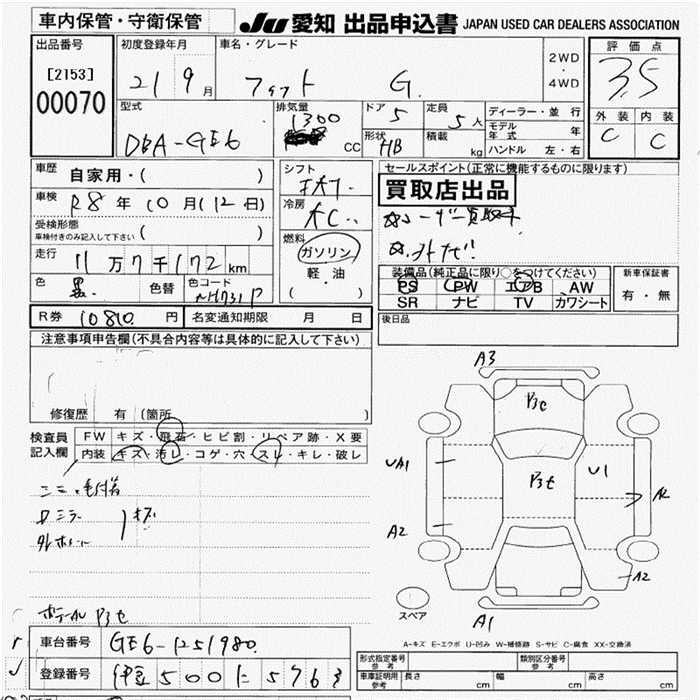 車内保管・守衛保管
JU 愛知 出品申込書 JAPAN USED CAR DEALERS ASSOCIATION
出品番号
[2153]
00070
初度登録年月
21 9 月
車名・グレード
フィット G.
2WD
・
4WD
評価点
3.5
外装 内装
C C
型式
DBA-GE6
排気量
1300
CC
ドア
5
定員
5 人
形状
HB
積載
kg
ディーラー・並行
モデル年式 年
ハンドル 左・右
車歴 自家用・( )
車検 R8 年 10 月 (12 日)
受検形態
車検付きのみ記入して下さい ( )
走行 11 万 7 千 172 km
色 黒. 色替 色コード NH731P
シフト
冷房
AC
燃料
ガソリン
軽・油
( )
セールスポイント(正常に機能するものに限ります)
買取店出品
装備品(純正品に限り○をつけてください)
PS PW エアB AW
SR ナビ TV カワシート
新車保証書
有・無
R券 10810. 円 名変通知期限 月 日
後日品
注意事項申告欄(不具合内容等は具体的に記入して下さい)
修復歴 有 (箇所 )
検査員記入欄
FW キズ・飛石・ヒビ割・リペア跡・X要
内装 キズ・汚レ・コゲ・穴・スレ・キレ・破レ
A3
P3c
UA1
P3t
U1
A2
A2
A2
スペア
A1
A-キズ E-エクボ U-凹み W-補修跡 S-サビ C-腐食 XX-交換済
車台番号 GE6-1251980.
登録番号 伊豆 500 に 5763
形式指定番号 参考
類別区分番号 参考
車庫証明用 参考 長さ cm 幅 cm 高さ cm